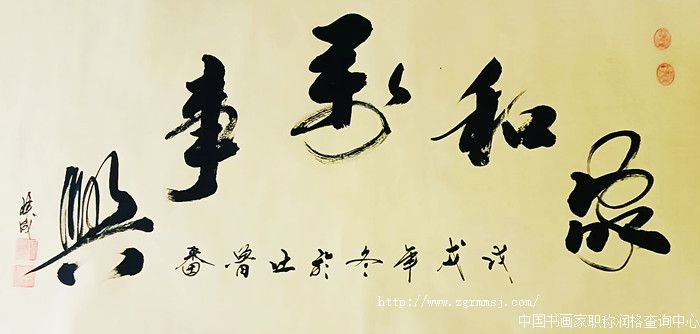 家和萬事興
戊戌年冬於吐魯番
http://www.zgrmmsj.com/
中国书画家职称润格查询中心